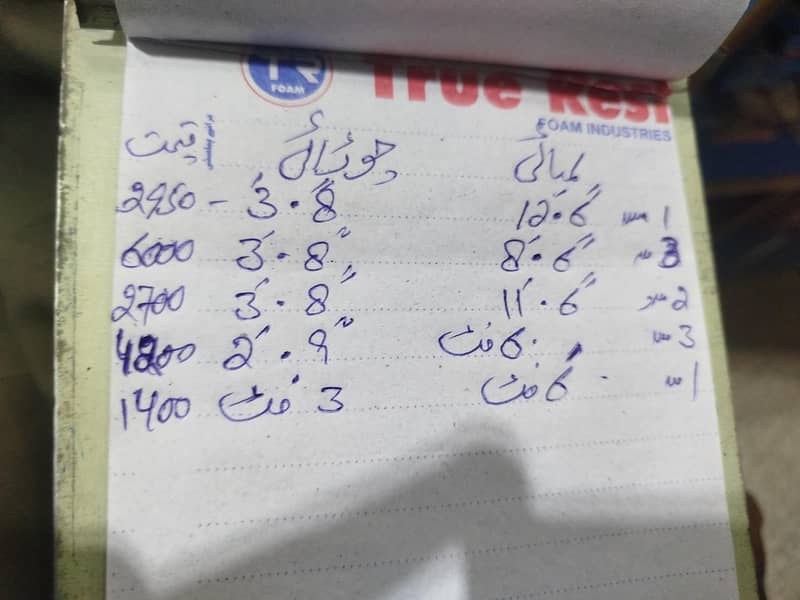 TR
FOAM
True Rest
FOAM INDUSTRIES
لمبائی چوڑائی قیمت
1 س 12'.6" 3'.8" - 2950
3 س 8'.6" 3'.8" 6000
2 س 11'.6" 3'.8" 2700
3 س 6 فٹ 2'.9" 4200
1 س 6 فٹ 3 فٹ 1400